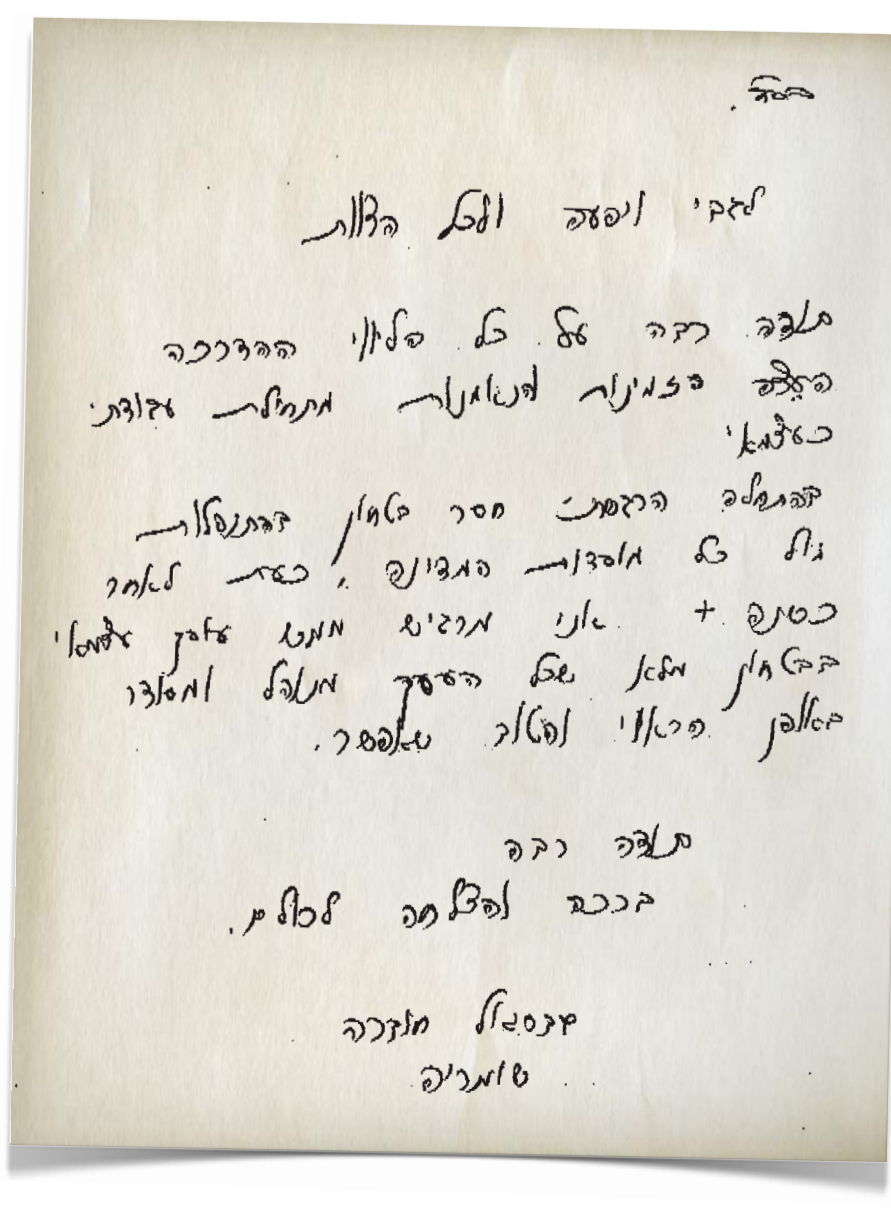 בס"ד.
לגבי ויפעה ולכל הצוות
תודה רבה על כל הליווי ההדרכה
העצה הזמינות והנאמנות מתחילת עבודתי
כעצמאי
בהתחלה הרגשתי חסר בטחון בהתנהלות
מול כל מוסדות המדינה, כעת לאחר
כשנה + אני מרגיש ממש עוסק עצמאי
בבטחון מלא שכל העסק מנוהל ומסודר
באופן הראוי והטוב שאפשר.
תודה רבה
ברכה והצלחה לכולם.
חוברה
שומריה